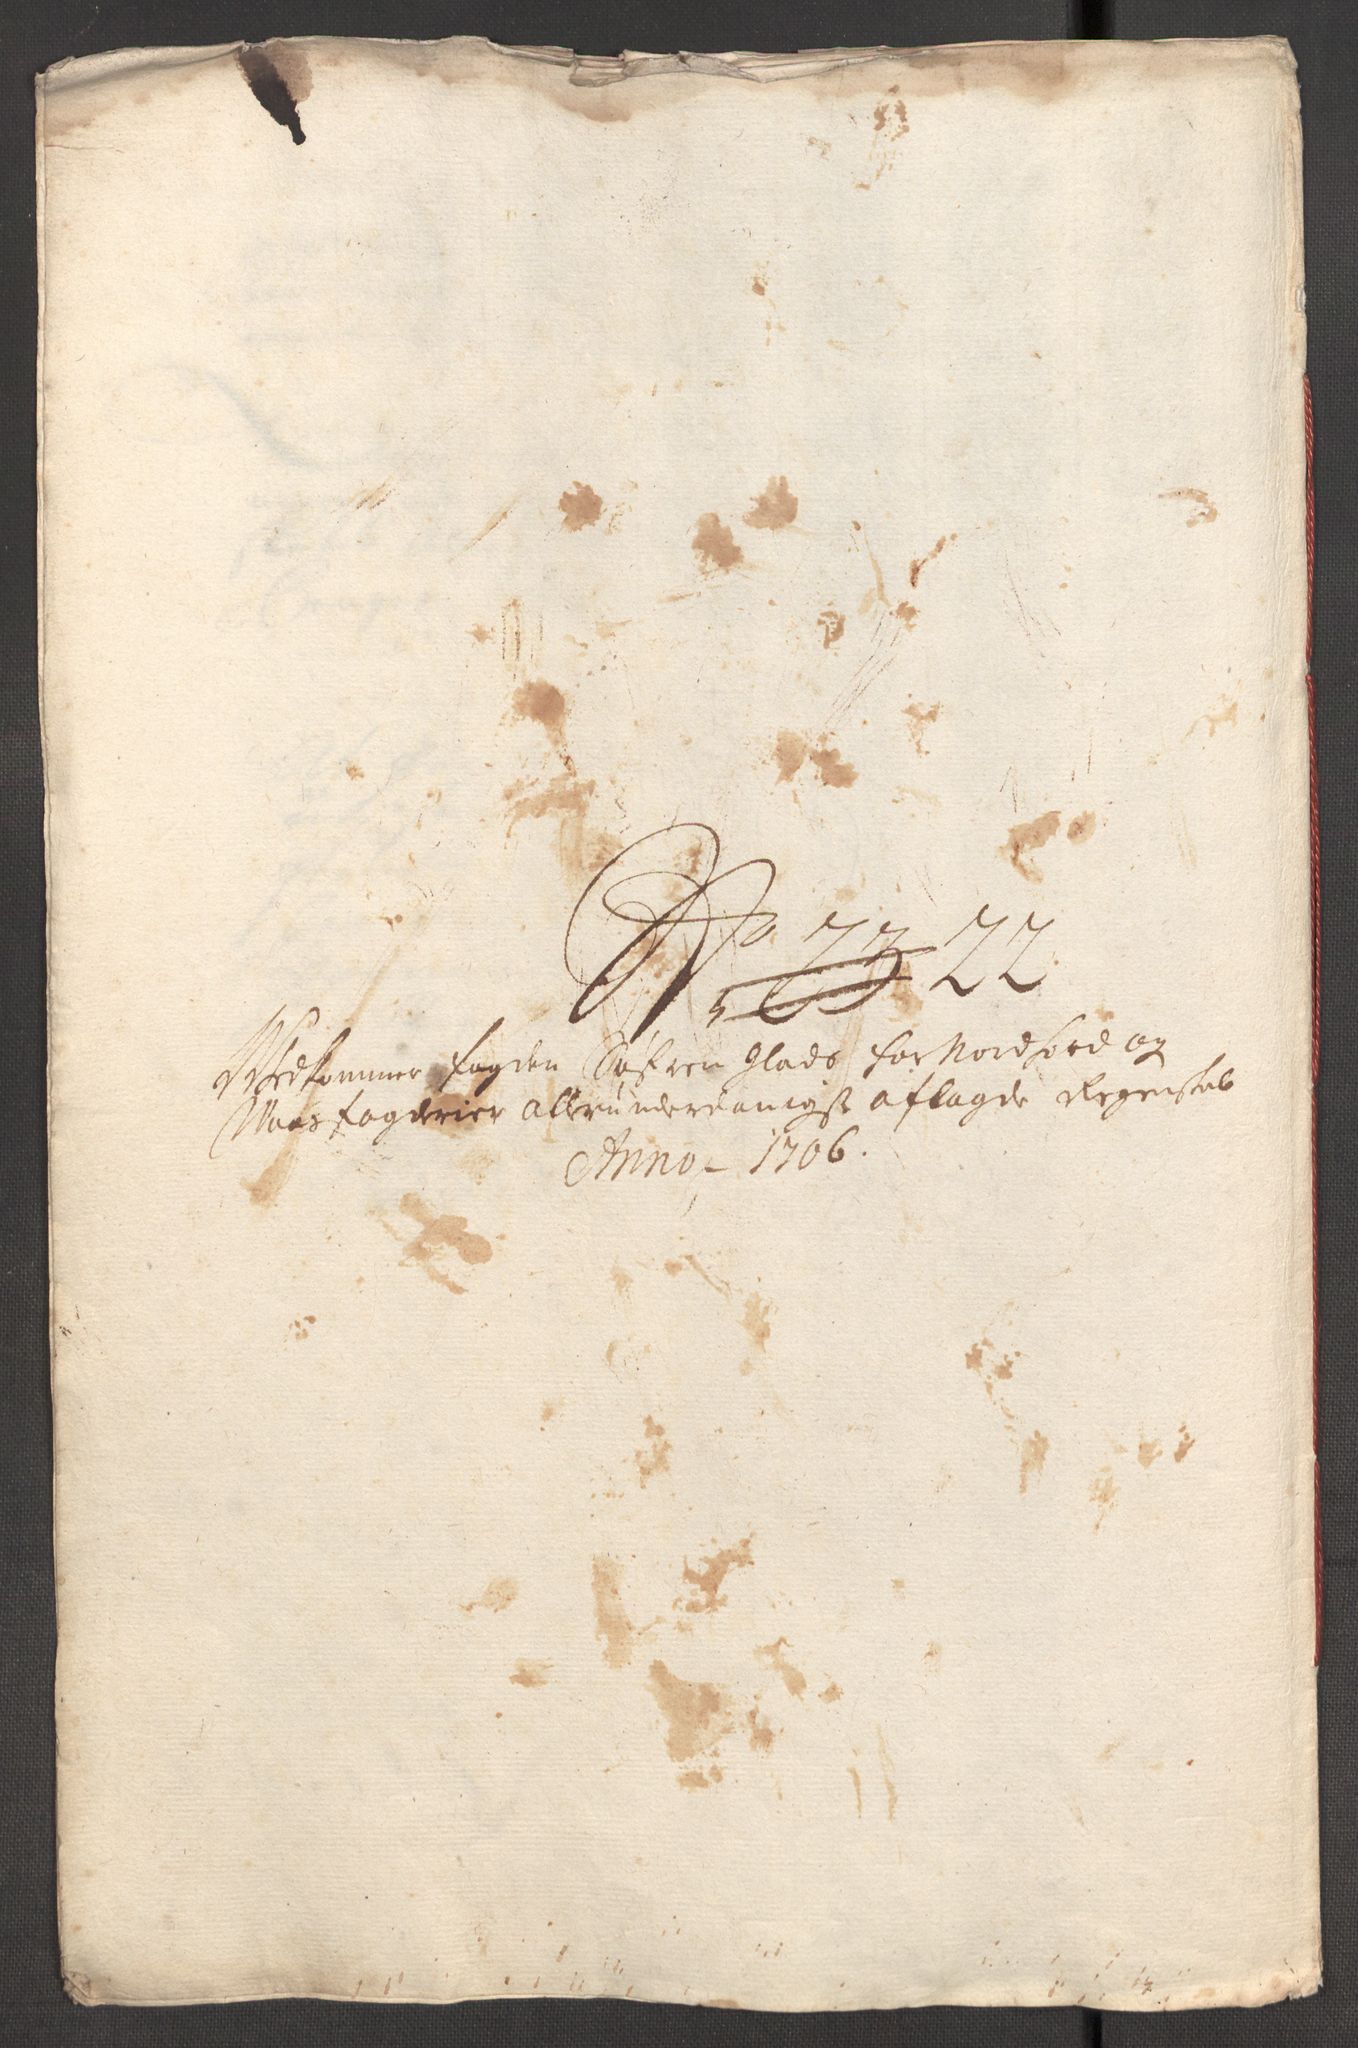 No 23 22
Vedkommer fogden Søfren Glads for Nordhord og
Waas fogderier allerunderdanigst aflagde Regenskab
Anno 1706.